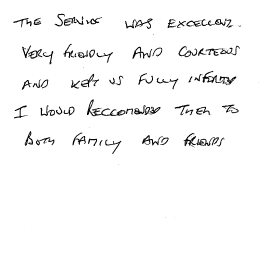 THE SERVICE WAS EXCELLENT.
VERY FRIENDLY AND COURTEOUS
AND KEPT US FULLY INFORMED
I WOULD RECCOMEND THEM TO
BOTH FAMILY AND FRIENDS